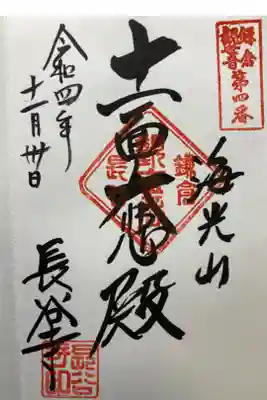 鎌倉
觀音
第四番
海光山
鎌倉
十一面大悲殿
令和四年
十一月卅日
長谷寺
長谷
寺印